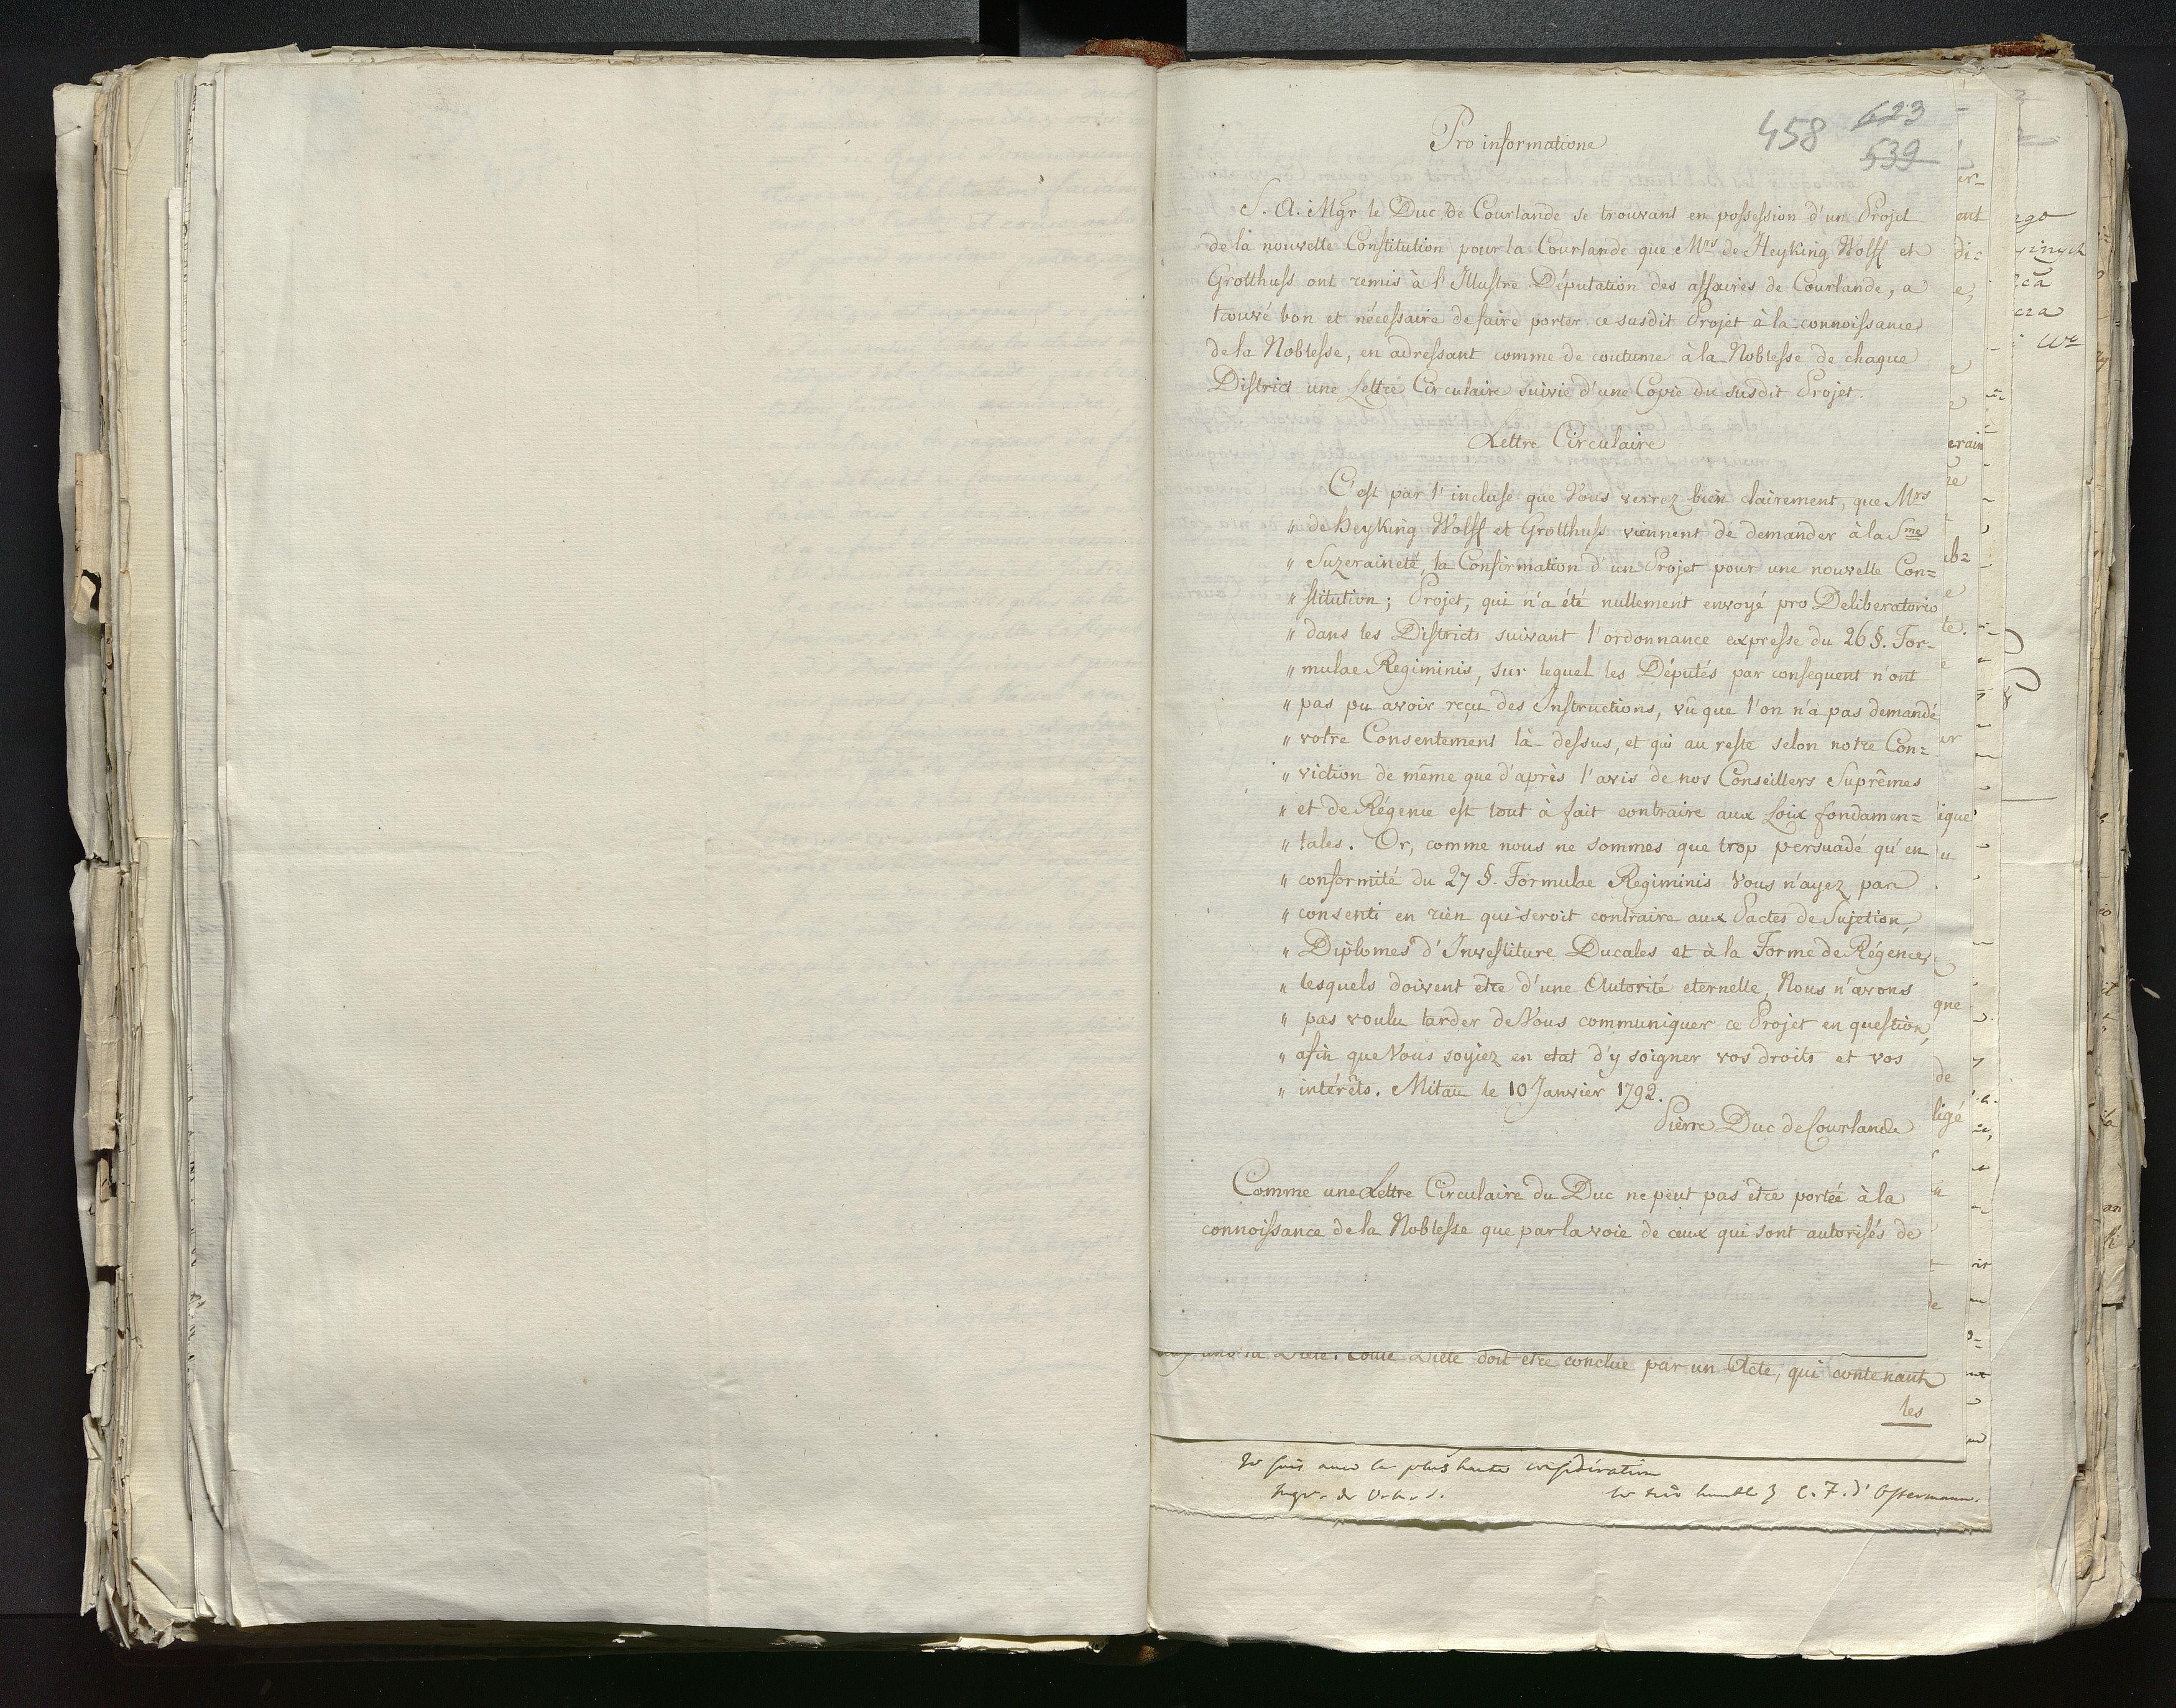 Pro informatione
458 623
539
S. A. Mgr le Duc de Courlande se trouvant en possession d'un Projet
de la nouvelle Constitution pour la Courlande que Mrs de Heyking Wolff et
Grotthuss ont remis à l'Illustre Députation des affaires de Courlande, a
trouvé bon et nécessaire de faire porter ce susdit Projet à la connoissance
de la Noblesse, en adressant comme de coutume à la Noblesse de chaque
District une Lettre Circulaire suivie d'une Copie du susdit Projet.
Lettre Circulaire
C'est par l'incluse que Vous verrez bien clairement, que Mrs
" de Heyking Wolff et Grotthuss viennent de demander à la Sme
" Suzeraineté, la Confirmation d'un Projet pour une nouvelle Con=
" stitution; Projet, qui n'a été nullement envoyé pro Deliberatorio
" dans les Districts suivant l'ordonnance expresse du 26 §. For-
" mulae Regiminis, sur lequel les Députés par consequent n'ont
" pas pu avoir reçu des Instructions, vû que l'on n'a pas demandé
" votre Consentement là-dessus, et qui au reste selon notre Con=
" viction de même que d'après l'avis de nos Conseillers Suprêmes
" et de Régence est tout à fait contraire aux Loix fondamen=
" tales. Or, comme nous ne sommes que trop persuadé qu'en
" conformité du 27 §. Formulae Regiminis Vous n'ayez pas
" consenti en rien qui seroit contraire aux Pactes de Sujetion,
" Diplomes d'Investiture Ducales et à la Forme de Régence,
" lesquels doivent etre d'une Autorité eternelle, Nous n'avons
" pas voulu tarder de Vous communiquer ce Projet en question,
" afin que Vous soyiez en etat d'y soigner vos droits et vos
" intérêts. Mitau le 10 Janvier 1792.
Pierre Duc de Courlande
Comme une Lettre Circulaire du Duc ne peut pas etre portée à la
connoissance de la Noblesse que par la voie de ceux qui sont autorisés de
Diete. Toute Diete doit etre conclue par un Acte, qui contenant
les
Je suis avec la plus haute considération
de V. A. S. le très humble C. F. d'Ostermann.